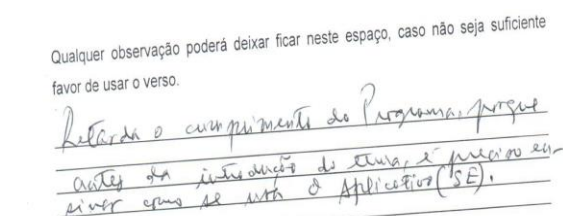 Qualquer observação poderá deixar ficar neste espaço, caso não seja suficiente
favor de usar o verso.
Retarda o cumprimento do Programa, porque
antes da introdução do tema, é preciso en-
sinar como se usa o Aplicativo ("SE).